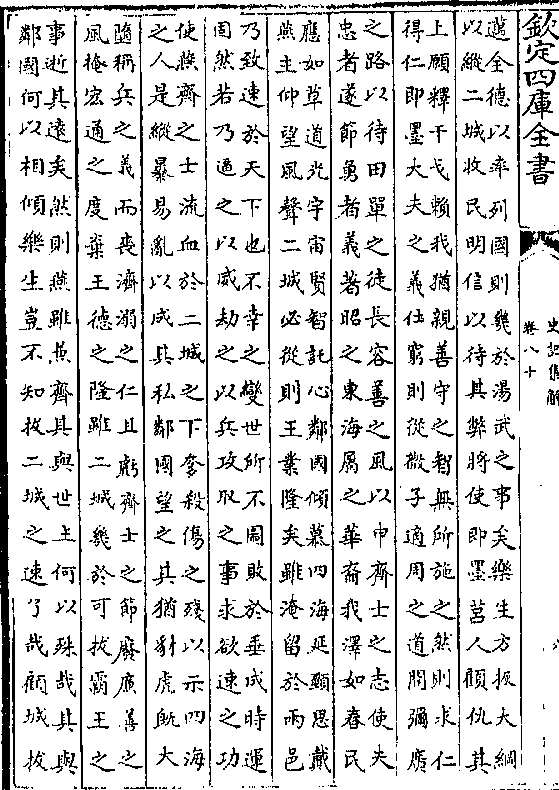 欽定四庫全書
史記集解
卷八十
邁全德以率列國則幾於湯武之事矣樂生方恢大綱
以縱二城收民明信以待其弊將使即墨莒人顧仇其
上願釋干戈賴我猶親善守之智無所施之然則求仁
得仁即墨大夫之義仕窮則從微子適周之道開彌廣
之路以待田單之徒長容善之風以申齊士之志使夫
忠者遂節勇者義著昭之東海屬之華裔我澤如春民
應如草道光宇宙賢智託心鄰國傾慕四海延頸思戴
燕主仰望風聲二城必從則王業隆矣雖淹留於兩邑
乃致速於天下也不幸之變世所不圖敗於垂成時運
固然若乃逼之以威劫之以兵攻取之事求欲速之功
使燕齊之士流血於二城之下奓殺傷之殘以示四海
之人是縱暴易亂以成其私鄰國望之其猶豺虎既大
墮稱兵之義而喪濟溺之仁且虧齊士之節廢廉善之
風掩宏通之度棄王德之隆雖二城幾於可拔霸王之
事逝其遠矣然則燕雖兼齊其與世主何以殊哉其與
鄰國何以相傾樂生豈不知拔二城之速了哉顧城拔